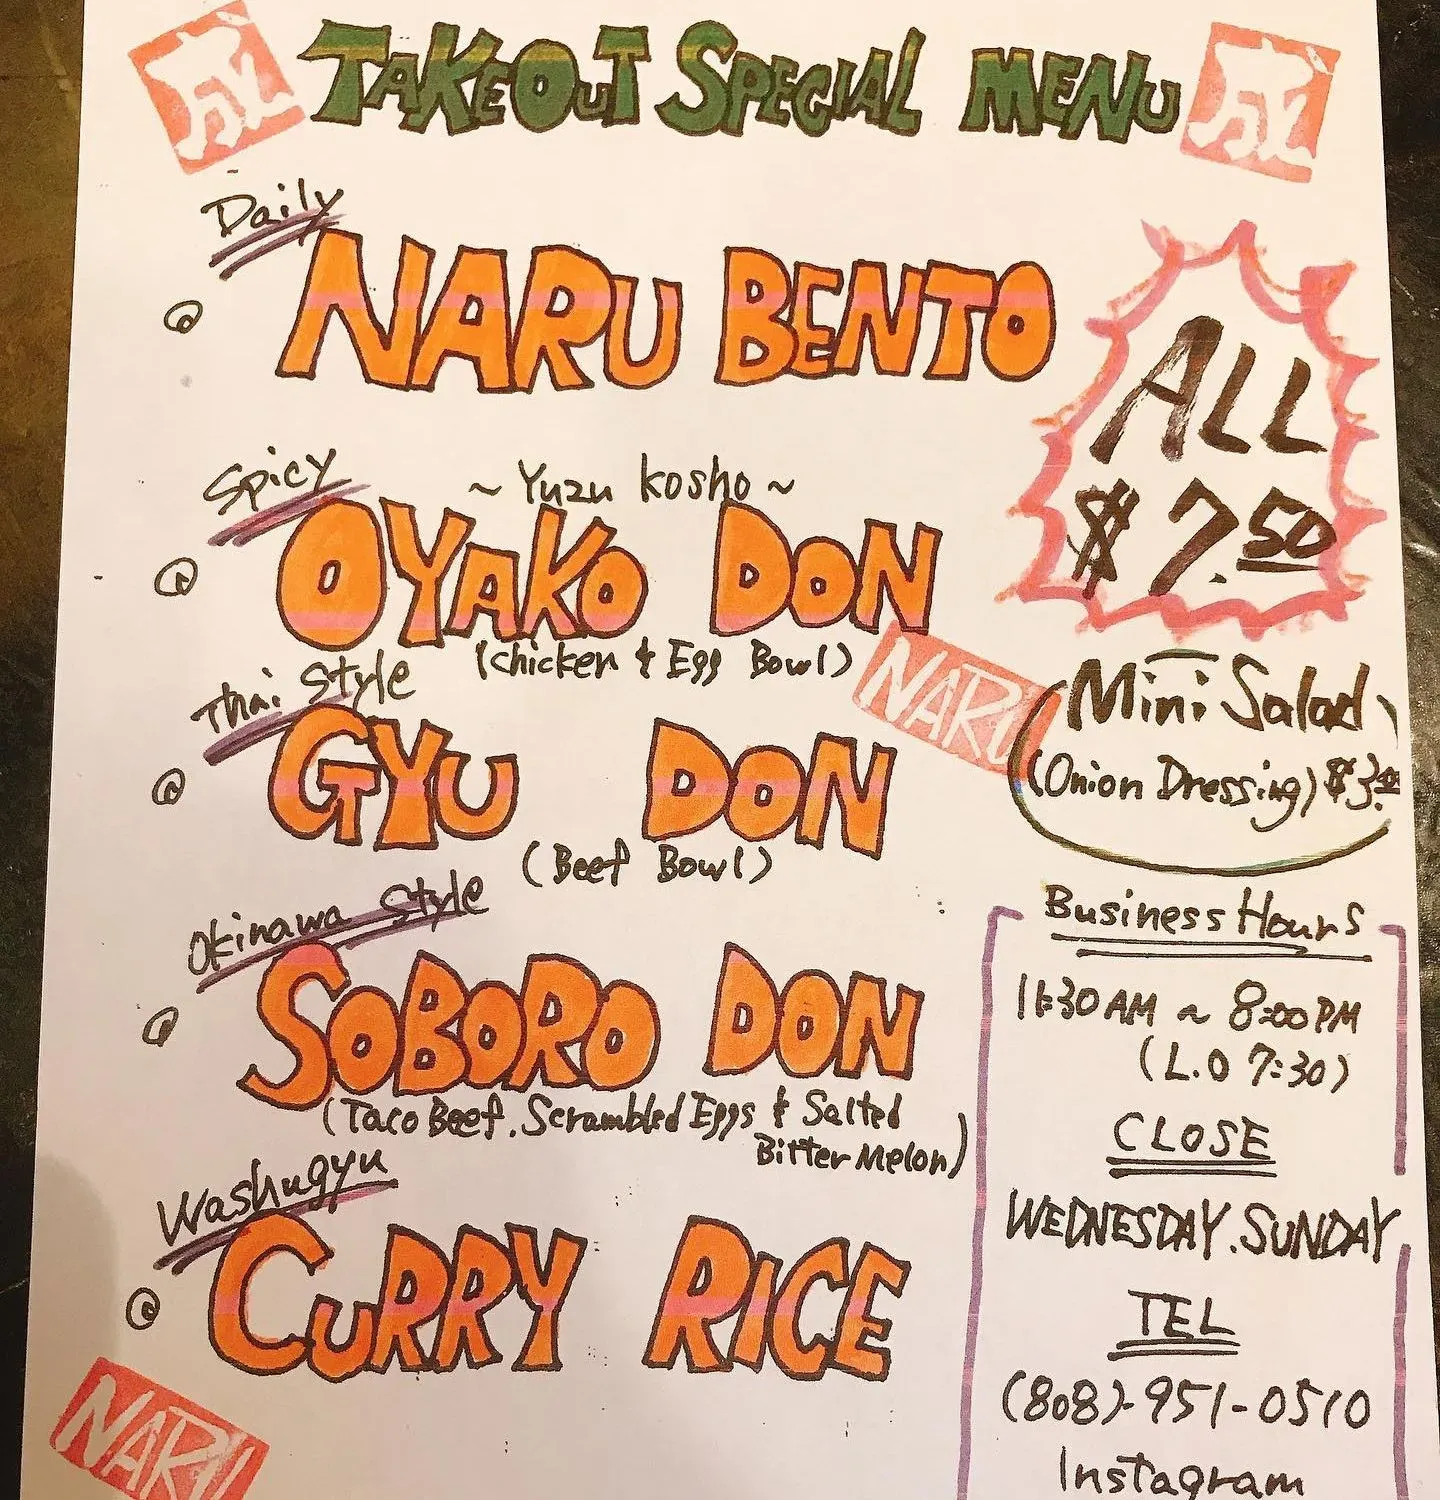 TAKEOUT SPECIAL MENU
成
成
Daily
NARU BENTO
Spicy
~ Yuzu Kosho ~
OYAKO DON
(Chicken & Egg Bowl)
Thai Style
GYU DON
(Beef Bowl)
Okinawa Style
SOBORO DON
(Taco Beef. Scrambled Eggs & Salted
Bitter Melon)
Washugyu
CURRY RICE
NARU
ALL
$7.50
NARU
Mini Salad
(Onion Dressing) $3.00
Business Hours
11:30AM ~ 8:00PM
(L.O 7:30)
CLOSE
WEDNESDAY.SUNDAY
TEL
(808)-951-0510
Instagram